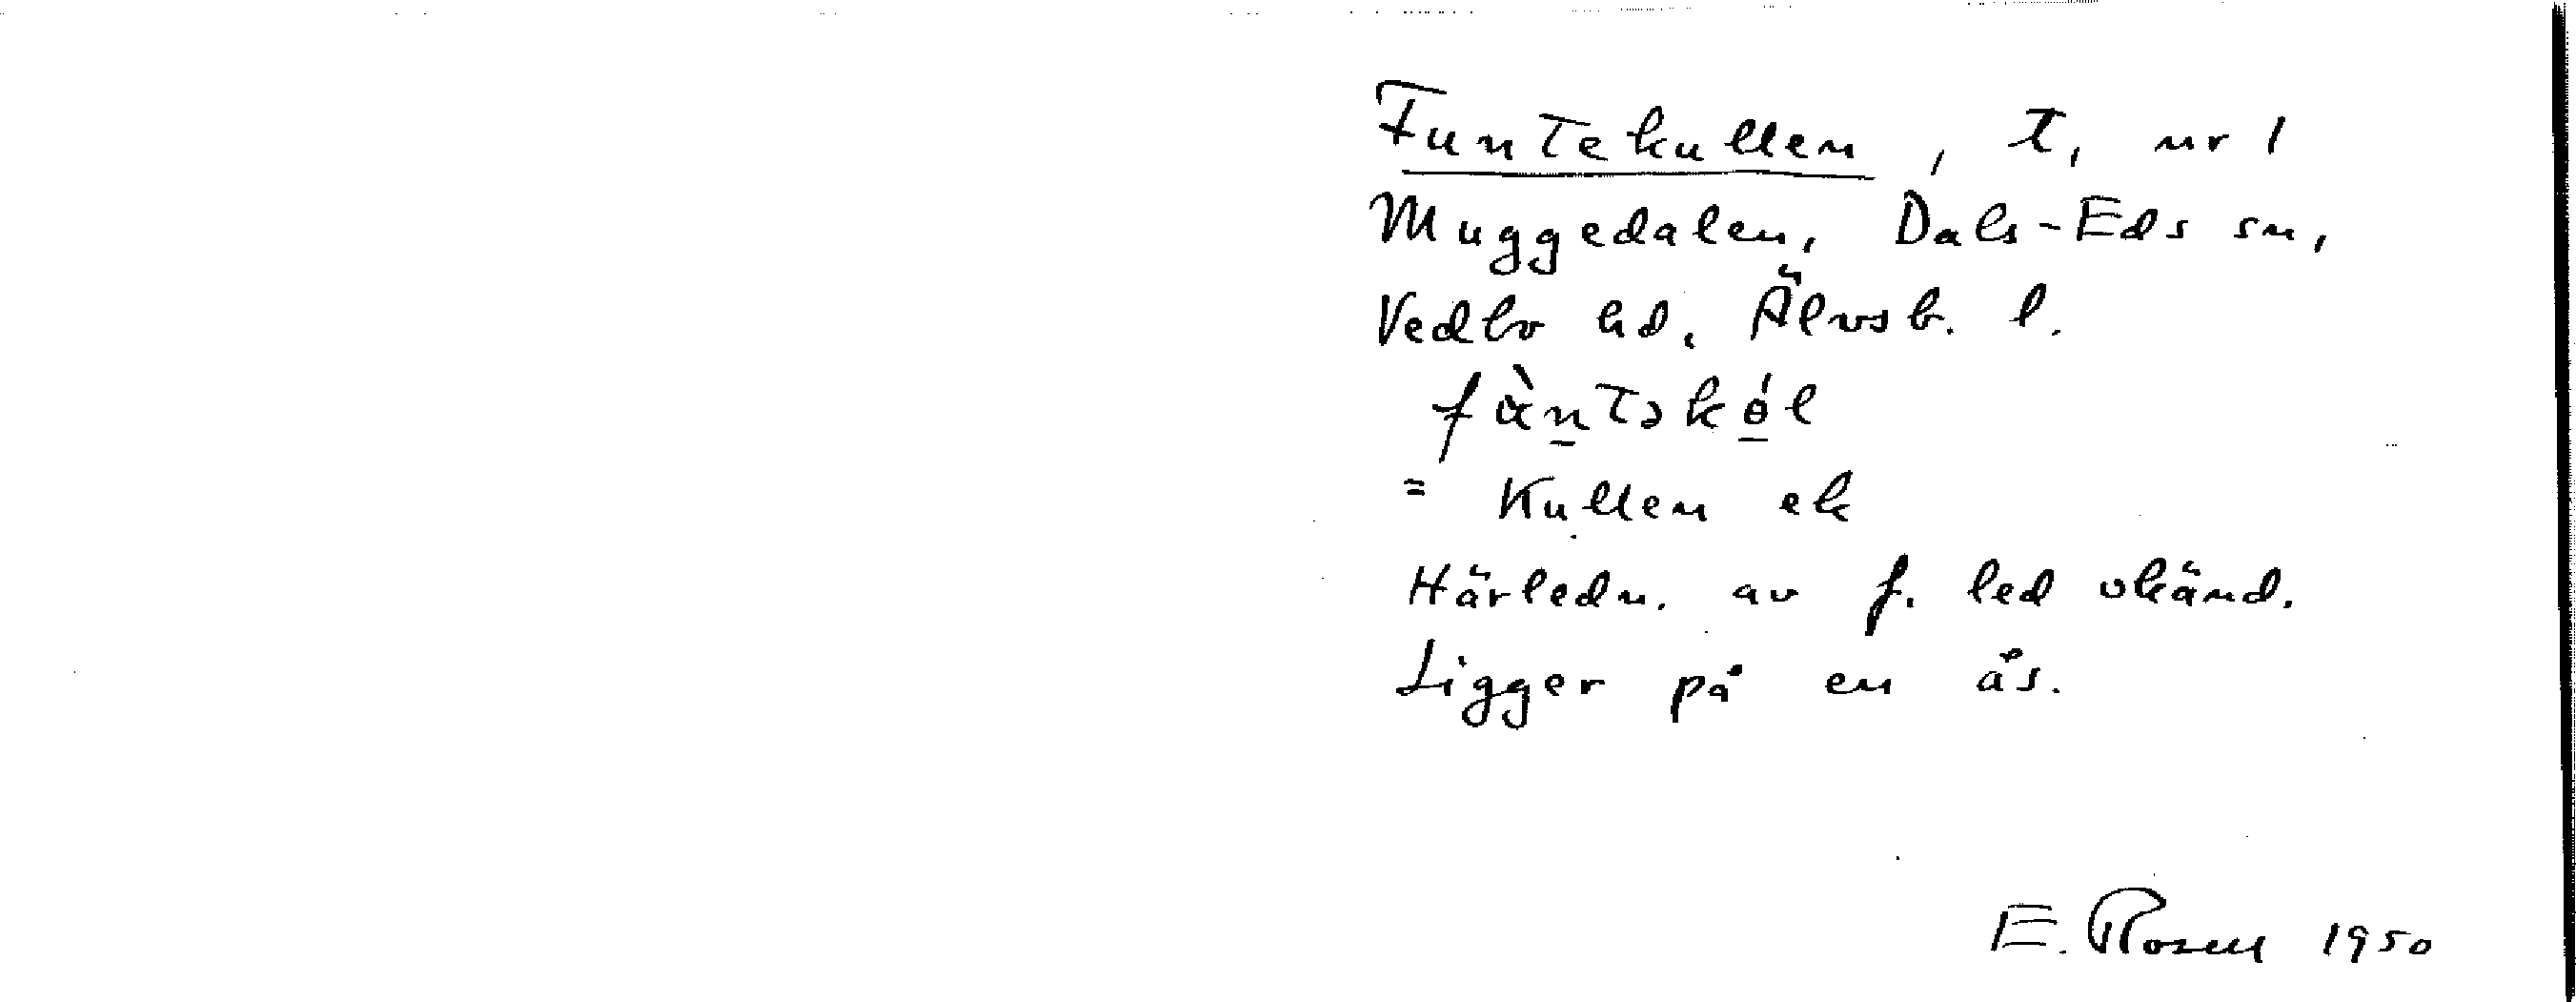 Funtekullen, t, nr 1
Muggedalen, Dals-Eds sn,
Vedbo hd. Älvsb. l.
fàntəkɵ́l
= Kullen ek
Härledn. av f. led okänd.
Ligger på en ås.
E. Rosell 1950